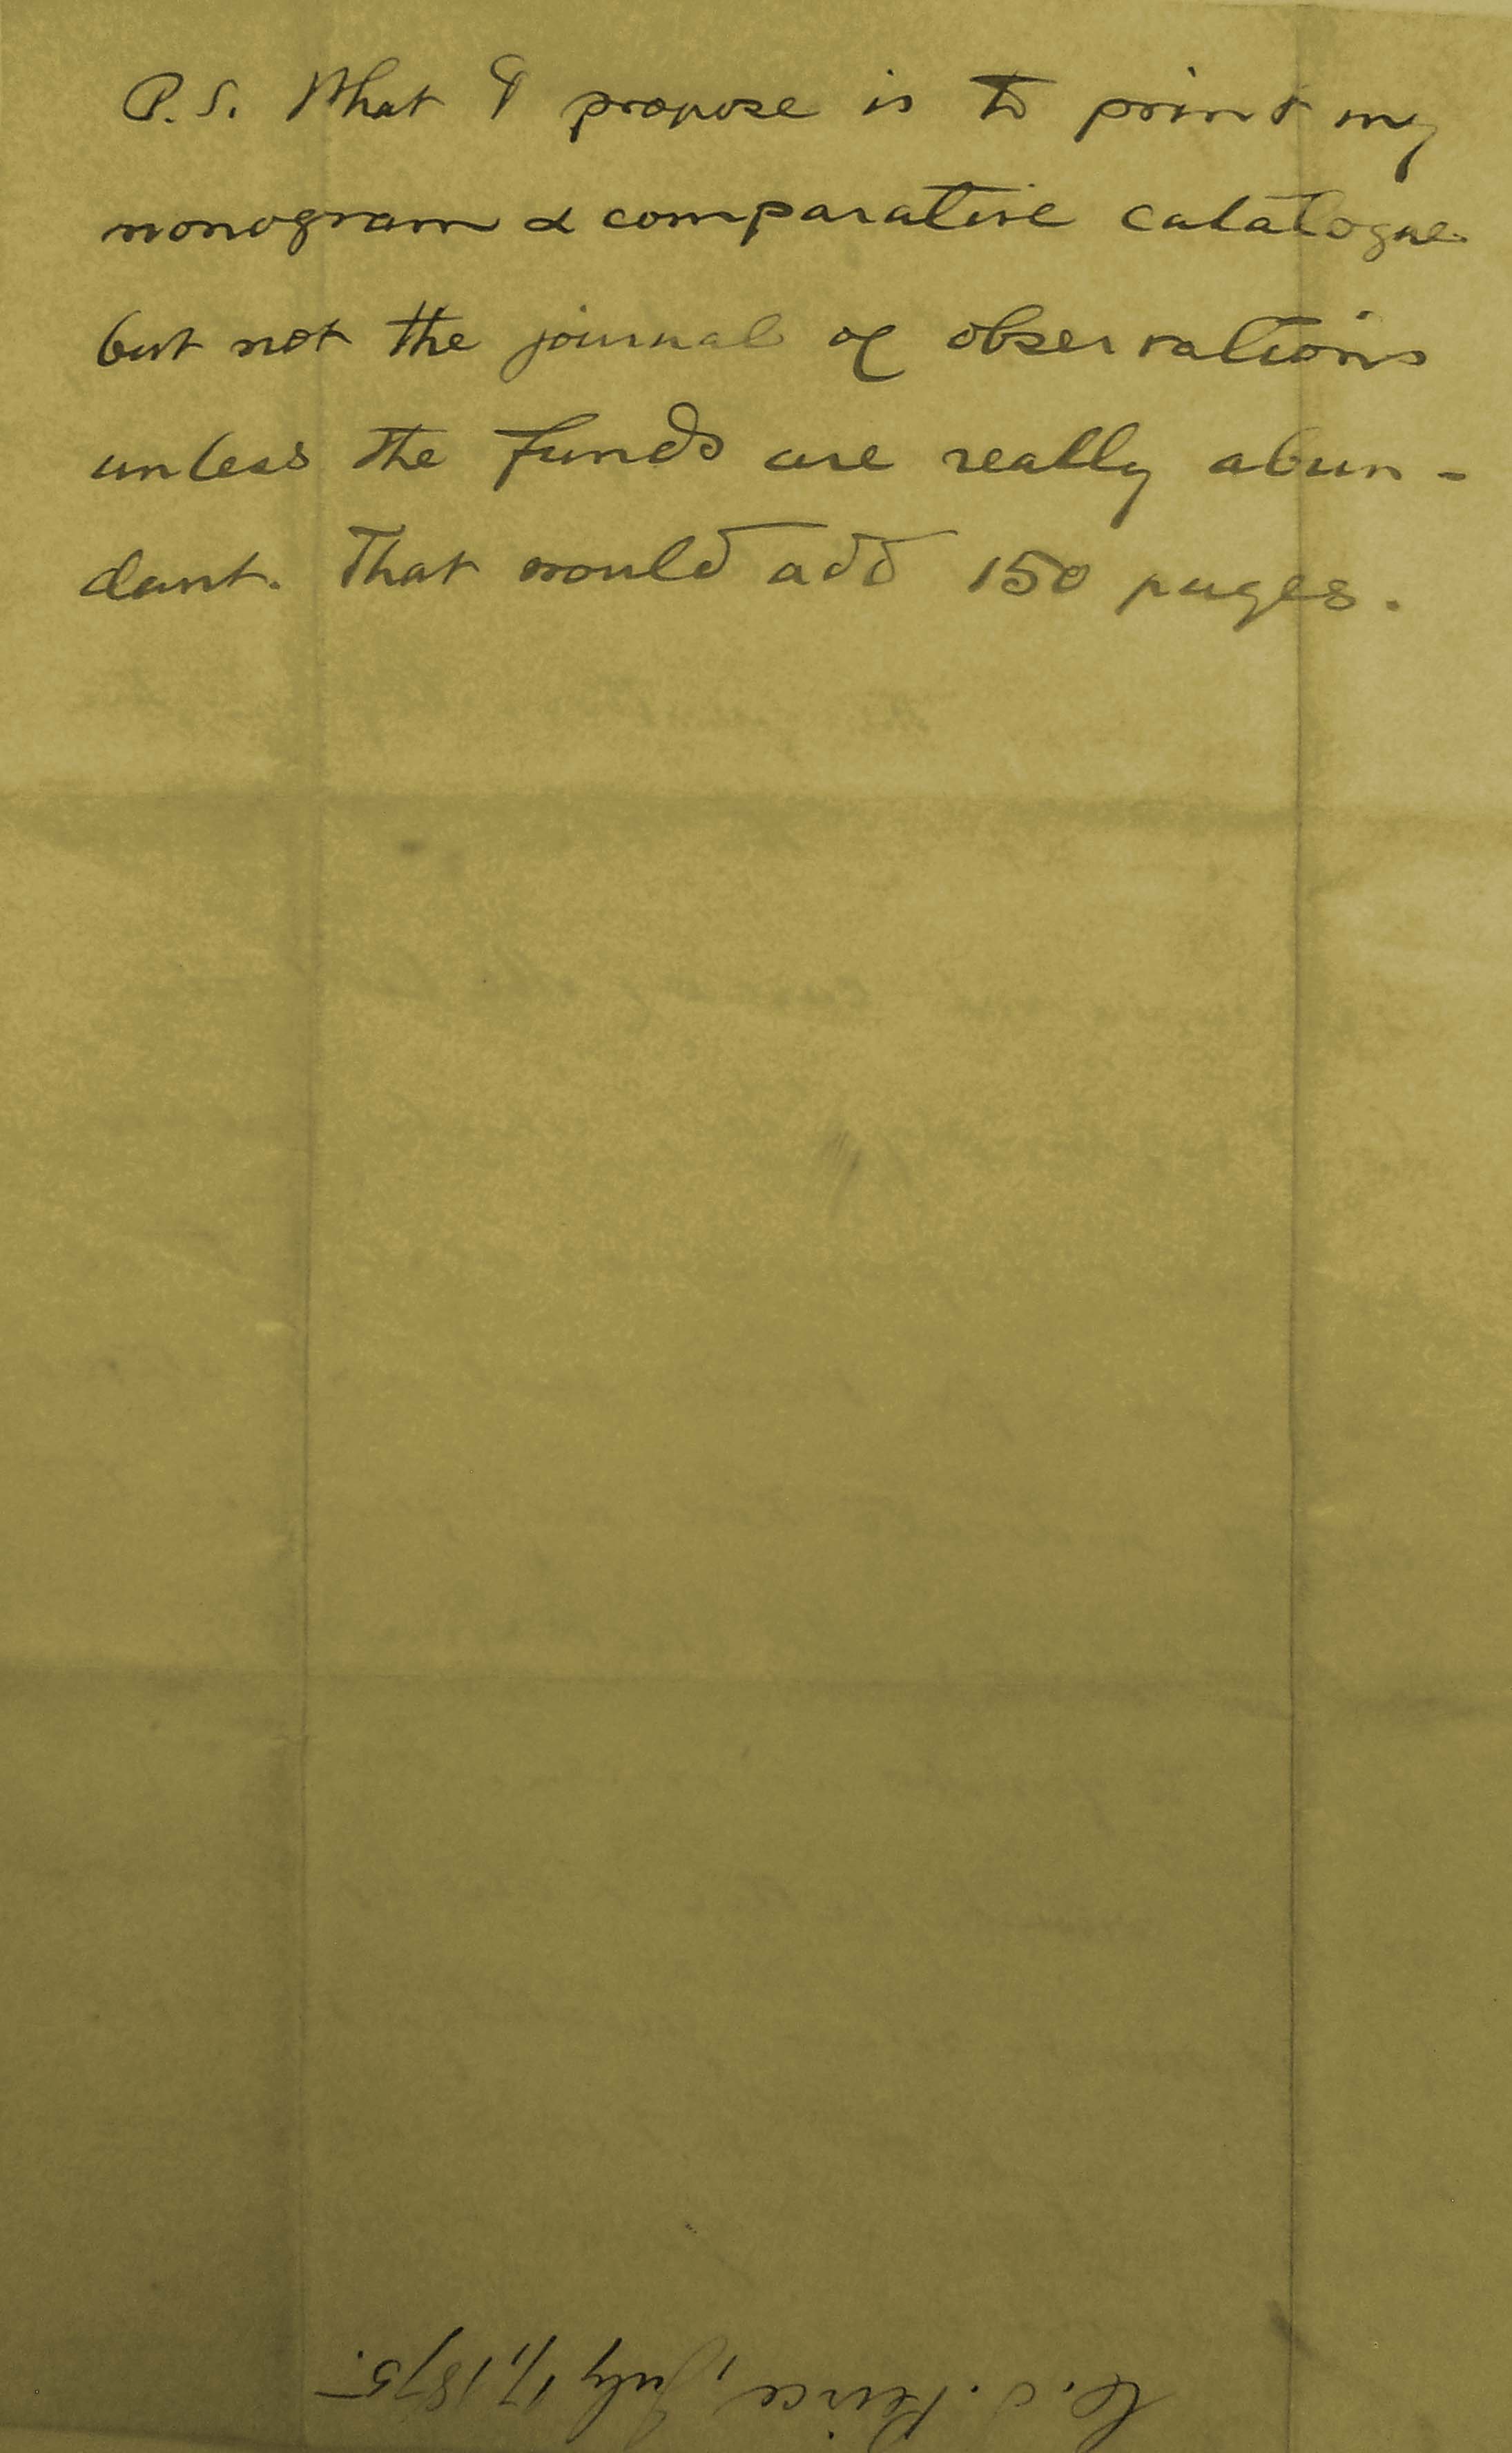 P.S. What I propose is to print my
monogram & comparative catalogue
but not the journal of observations
unless the funds are really abun-
dant. That would add 150 pages.
C. S. Peirce, July 17, 1875.